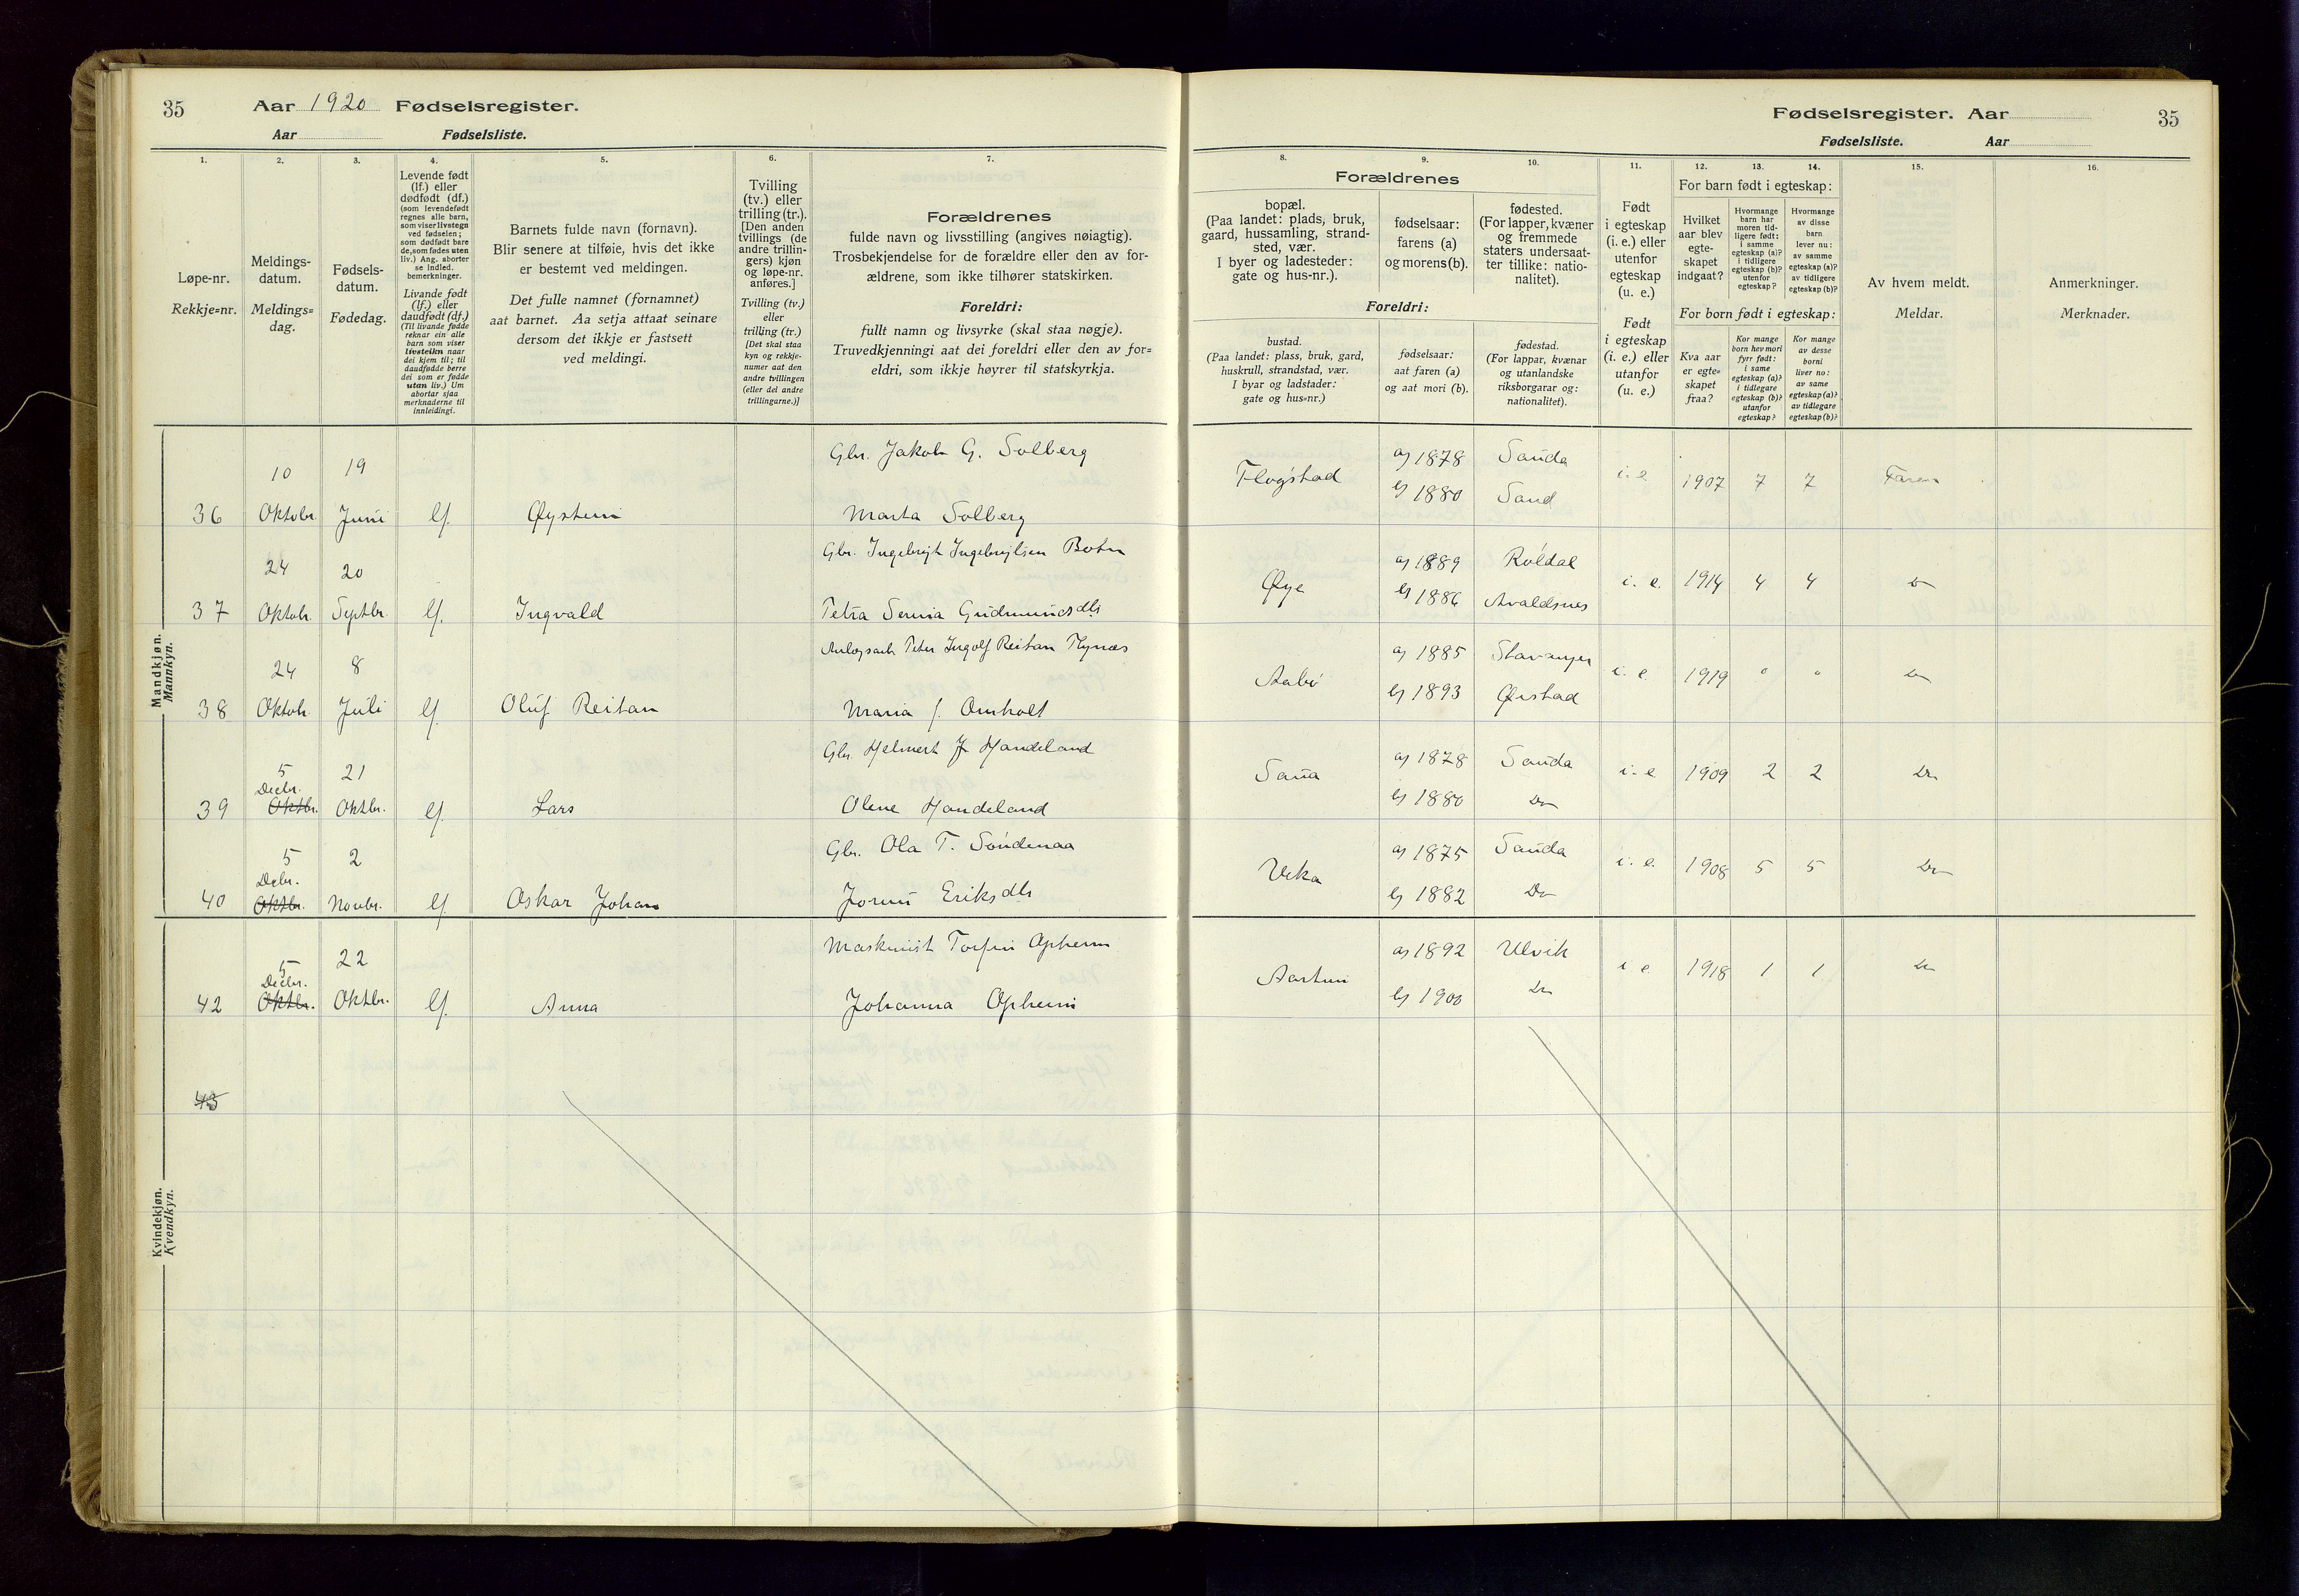 35 Aar 1920 Fødselsregister.
Aar Fødselsliste.
Fødselsregister. Aar 35
Fødselsliste. Aar
1. 2. 3. 4. 5. 6. 7. 8. 9. 10. 11. 12. 13. 14. 15. 16.
Løpe-nr.
Rekkje=nr.
Meldings-
datum.
Meldings=
dag.
Fødsels-
datum.
Fødedag.
Levende født
(lf.) eller
dødfødt (df.)
(som levendefødt
regnes alle barn,
som viser livstegn
ved fødselen;
som dødfødt bare
de, som fødes uten
liv.) Ang. aborter
se indled.
bemerkninger.
Livande født
(lf.) eller
daudfødt (df.)
(Til livande fødde
reknar ein alle
barn som viser
livsteikn naar
dei kjem til; til
daudfødde berre
dei som er fødde
utan liv.) Um
abortar sjaa
merknaderne til
innleidingi.
Barnets fulde navn (fornavn).
Blir senere at tilføie, hvis det ikke
er bestemt ved meldingen.
Det fulle namnet (fornamnet)
aat barnet. Aa setja attaat seinare
dersom det ikkje er fastsett
ved meldingi.
Tvilling
(tv.) eller
trilling (tr.).
[Den anden
tvillings (de
andre trillin-
gers) kjøn
og løpe-nr.
anføres.]
Tvilling (tv.)
eller
trilling (tr.)
[Det skal staa
kyn og rekkje-
numer aat den
andre tvillingen
(eller dei andre
trillingarne.)]
Forældrenes
fulde navn og livsstilling (angives nøiagtig).
Trosbekjendelse for de forældre eller den av for-
ældrene, som ikke tilhører statskirken.
Foreldri:
fullt namn og livsyrke (skal staa nøgje).
Truvedkjenningi aat dei foreldri eller den av for=
eldri, som ikkje høyrer til statskyrkja.
Forældrenes
bopæl.
(Paa landet: plads, bruk,
gaard, hussamling, strand-
sted, vær.
I byer og ladesteder:
gate og hus-nr.).
fødselsaar:
farens (a)
og morens (b).
fødested.
(For lapper, kvæner
og fremmede
staters undersaat-
ter tillike: natio-
nalitet).
Foreldri:
bustad.
(Paa landet: plass, bruk, gard,
huskrull, strandstad, vær.
I byar og ladstader:
gate og hus=nr.)
fødselsaar:
aat faren (a)
og aat mori (b).
fødestad.
(For lappar, kvænar
og utanlandske
riksborgarar og:
nationalitet).
Født
i egteskap
(i. e.) eller
utenfor
egteskap
(u. e.)
Født
i egteskap
(i. e.) eller
utanfor
(u. e.)
For barn født i egteskap:
Hvilket
aar blev
egte-
skapet
indgaat?
Hvormange
barn har
moren tid-
ligere født:
i samme
egteskap (a)?
i tidligere
egteskap (b)?
utenfor
egteskap?
Hvormange
av disse
barn
lever nu:
av samme
egteskap (a)?
av tidligere
egteskap (b)?
For born født i egteskap:
Kva aar
er egte=
skapet
fraa?
Kor mange
born hev mori
fyrr født:
i same
egteskap (a)?
i tidlegare
egteskap (b)?
utanfor
egteskap?
Kor mange
av desse
borni
liver no:
av same
egteskap (a)?
av tidlegare
egteskap (b)?
Av hvem meldt.
Meldar.
Anmerkninger.
Merknader.
Mandkjøn.
Mannkyn.
10 19 Gbr. Jakob G. Solberg Flogstad a) 1878 Sauda i. e. 1907 7 7 Faren
36 Oktobr. Juni lf. Øystein Marta Solberg b) 1880 Sand
24 20 Gbr. Ingebrigt Ingebrigtsen Botn Øye a) 1889 Røldal i. e. 1914 4 4 Do
37 Oktobr. Septbr. lf. Ingvald Petra Serina Gudmundsdtr b) 1886 Avaldsnes
24 8 Anlægsarb. Peter Ingolf Reitan Flynæs Aabø a) 1885 Stavanger i. e. 1919 " " Do
38 Oktobr. Juli lf. Oluf Reitan Maria J. Omholt b) 1893 Øiestad
5 21 Gbr. Helmert J. Handeland Saua a) 1878 Sauda i. e. 1909 2 2 Do
Decbr.
39 Oktbr. Oktbr. lf. Lars Olene Handeland b) 1880 Do
5 2 Gbr. Ola T. Søndenaa Veka a) 1875 Sauda i. e. 1908 5 5 Do
Decbr.
40 Oktbr. Novbr. lf. Oskar Johan Jorunn Eriksdtr b) 1882 Do
Kvindekjøn.
Kvendkyn.
5 22 Maskinist Torfin Opheim Aartun a) 1892 Ulvik i. e. 1918 1 1 Do
Decbr.
42 Oktbr. Oktbr. lf. Anna Johanna Opheim b) 1900 Do
43